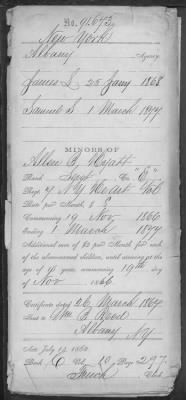 No. 91.673
New York
Albany Agency.
James S 25 Jany 1868
Samuel S 1 March 1877
MINORS OF
Allen B. Hyatt
Rank Sergt Co "E"
Regt 7 N.Y. Heavy Vol
Rate per Month 8
Commencing 19 Nov. 1866
Ending 1 March 1877
Additional sum of $2 per Month for each
of the above-named children, until arriving at the
age of 16 years, commencing 19th day
of Nov 1866
Certificate dated 26 March 1867
Sent to Wm B. Reed
Albany NY
Act July 14 1862
Book C Vol. 10 Page 297.
Clerk